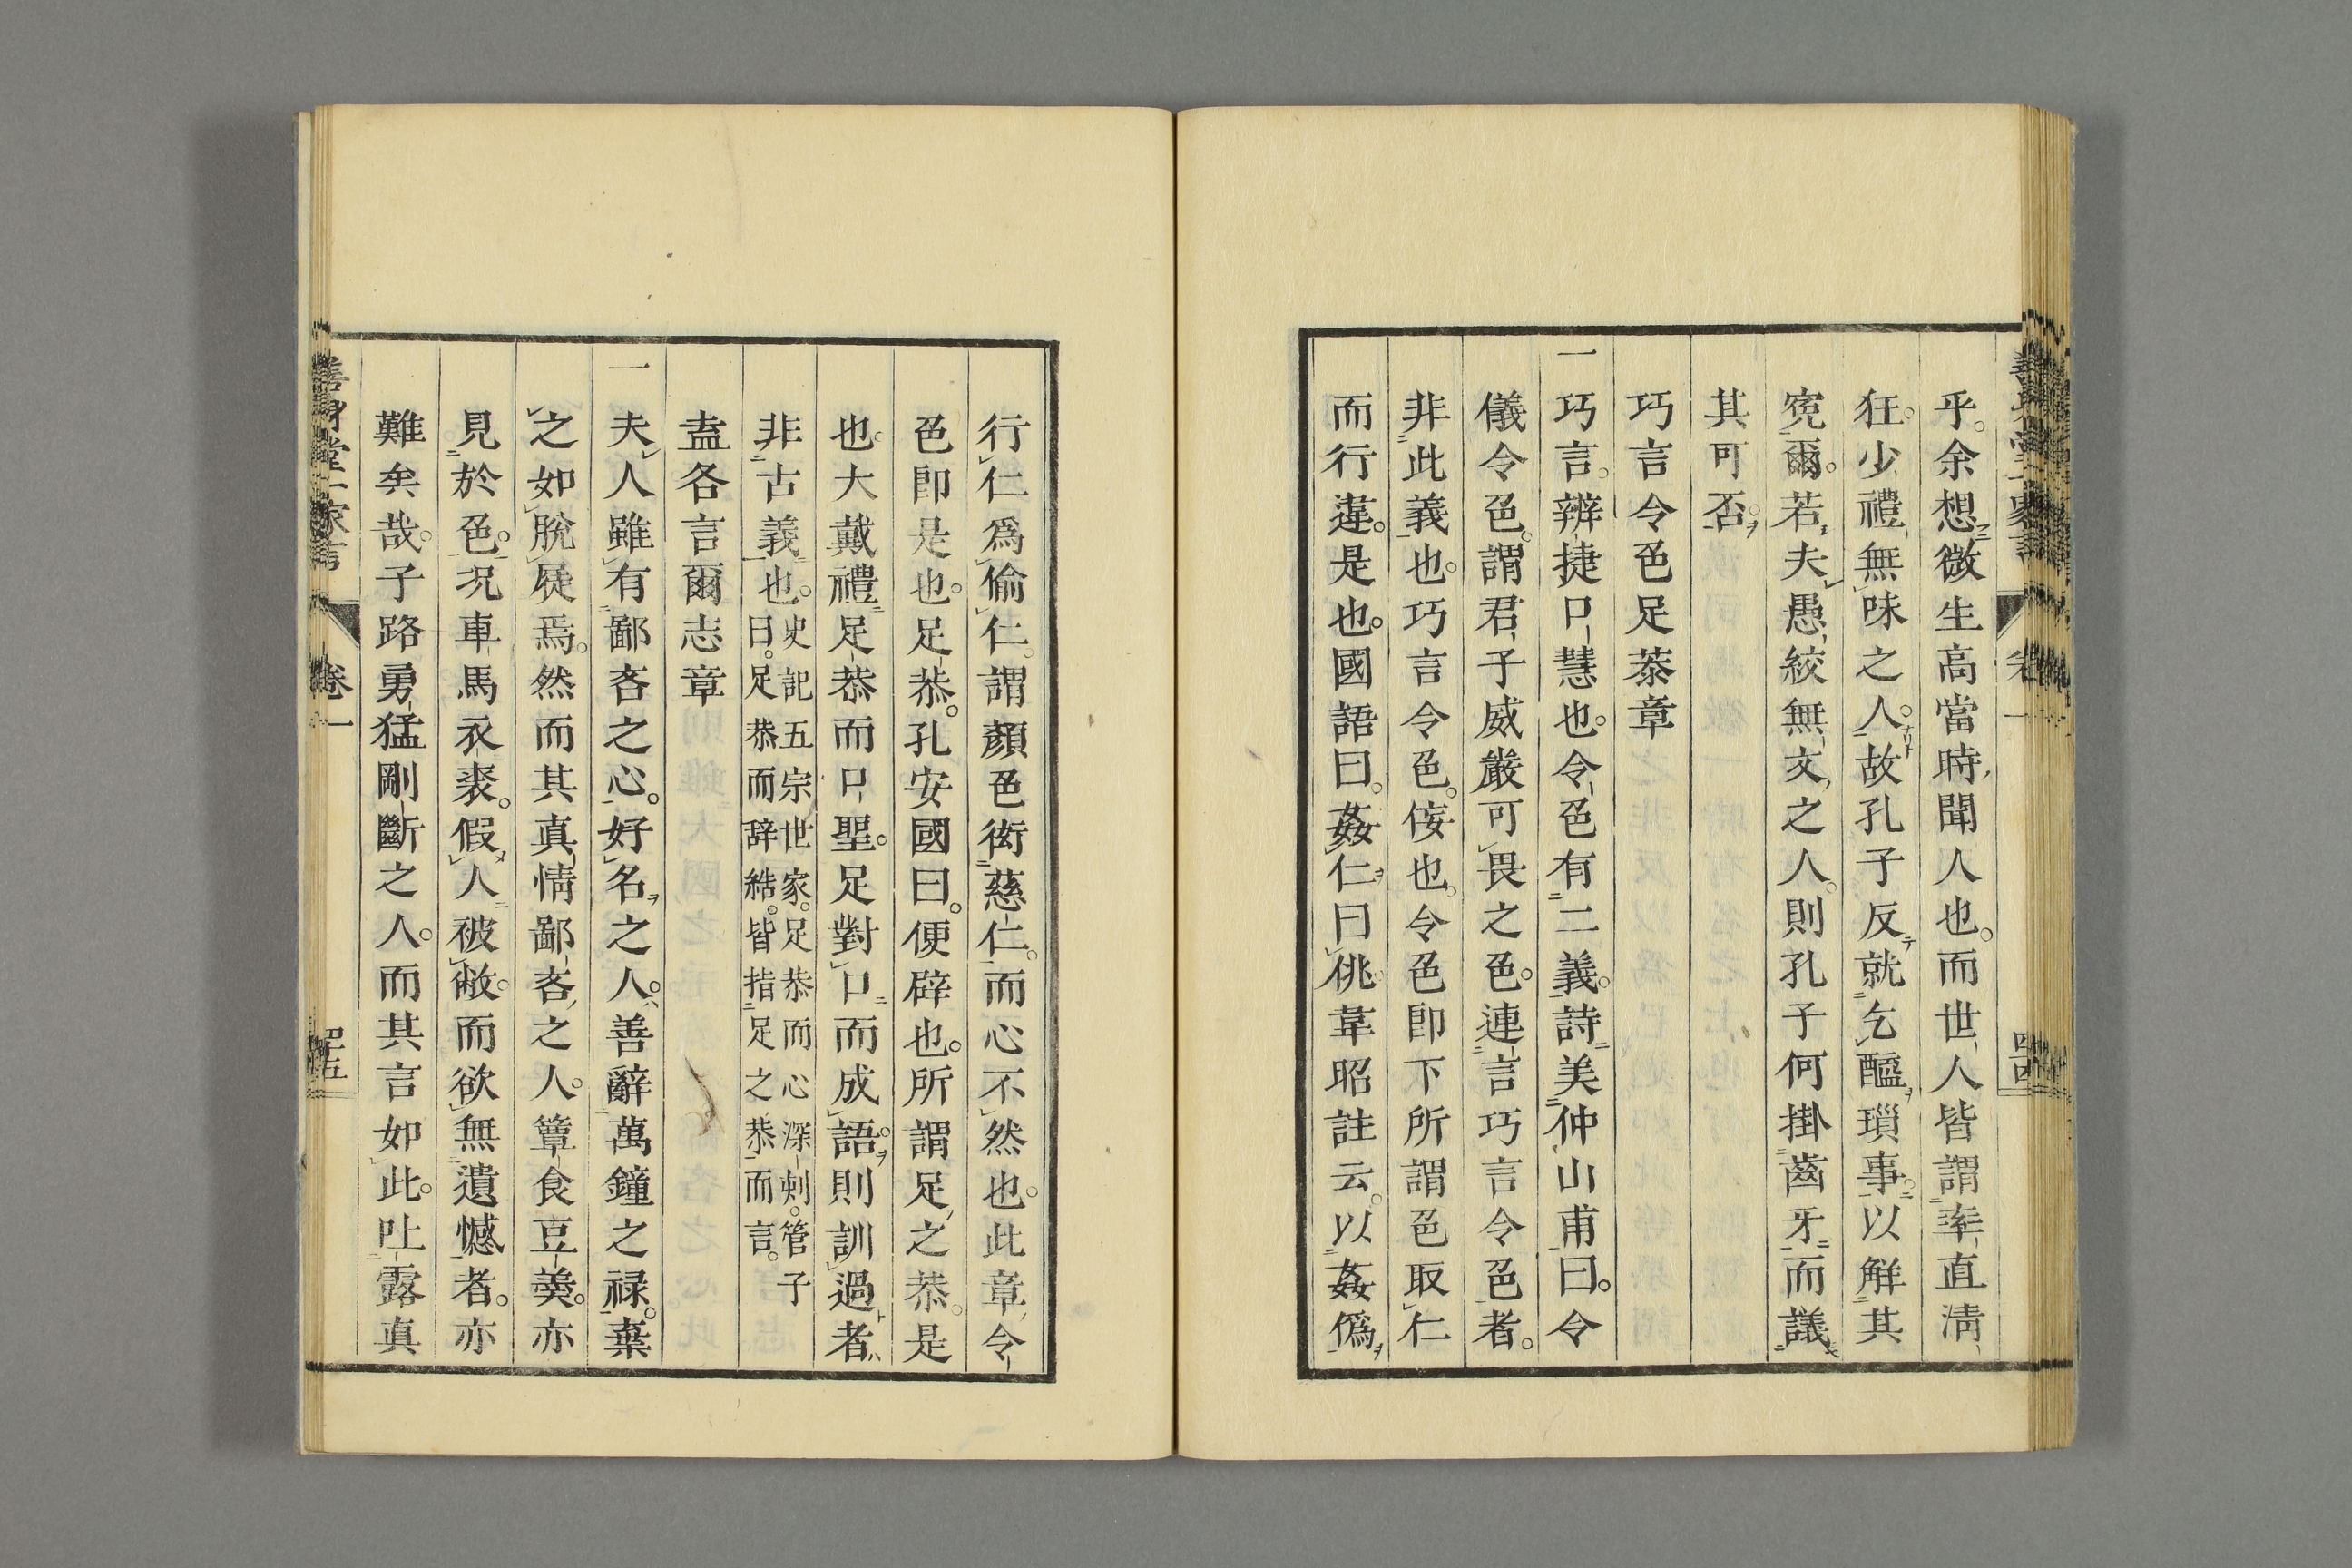 乎。余想微生高當時聞人也。而世人皆謂率直淸
狂。少禮無味之人。故孔子反就乞醯瑣事。以解其
寃爾。若夫愚絞無文之人。則孔子何掛齒牙而議
其可否。
巧言令色足恭章
一巧言。辨捷口慧也。令色有二義。詩美仲山甫曰。令
儀令色。謂君子威嚴可畏之色。連言巧言令色者。
非此義也。巧言令色。佞也。令色卽下所謂色取仁
而行違。是也。國語曰。姦仁曰佻。韋昭註云。以姦僞
行仁爲偷仁。謂顏色衒慈仁。而心不然也。此章令
色卽是也。足恭。孔安國曰。便辟也。所謂足之恭。是
也。大戴禮足恭而口聖。足對口而成語。則訓過者
非古義也。史記五宗世家。足恭而心深刺。管子
曰。足恭而辞結。皆指足之恭而言。
盍各言爾志章
一夫人雖有鄙吝之心。好名之人。善辭萬鐘之禄。棄
之如脫屣焉。然而其真情鄙吝之人。簞食豆羮。亦
見於色。况車馬衣裘。假人被敝。而欲無遺憾者。亦
難矣哉。子路勇猛剛斷之人。而其言如此。吐露真
善身堂一家言 卷一 四十五